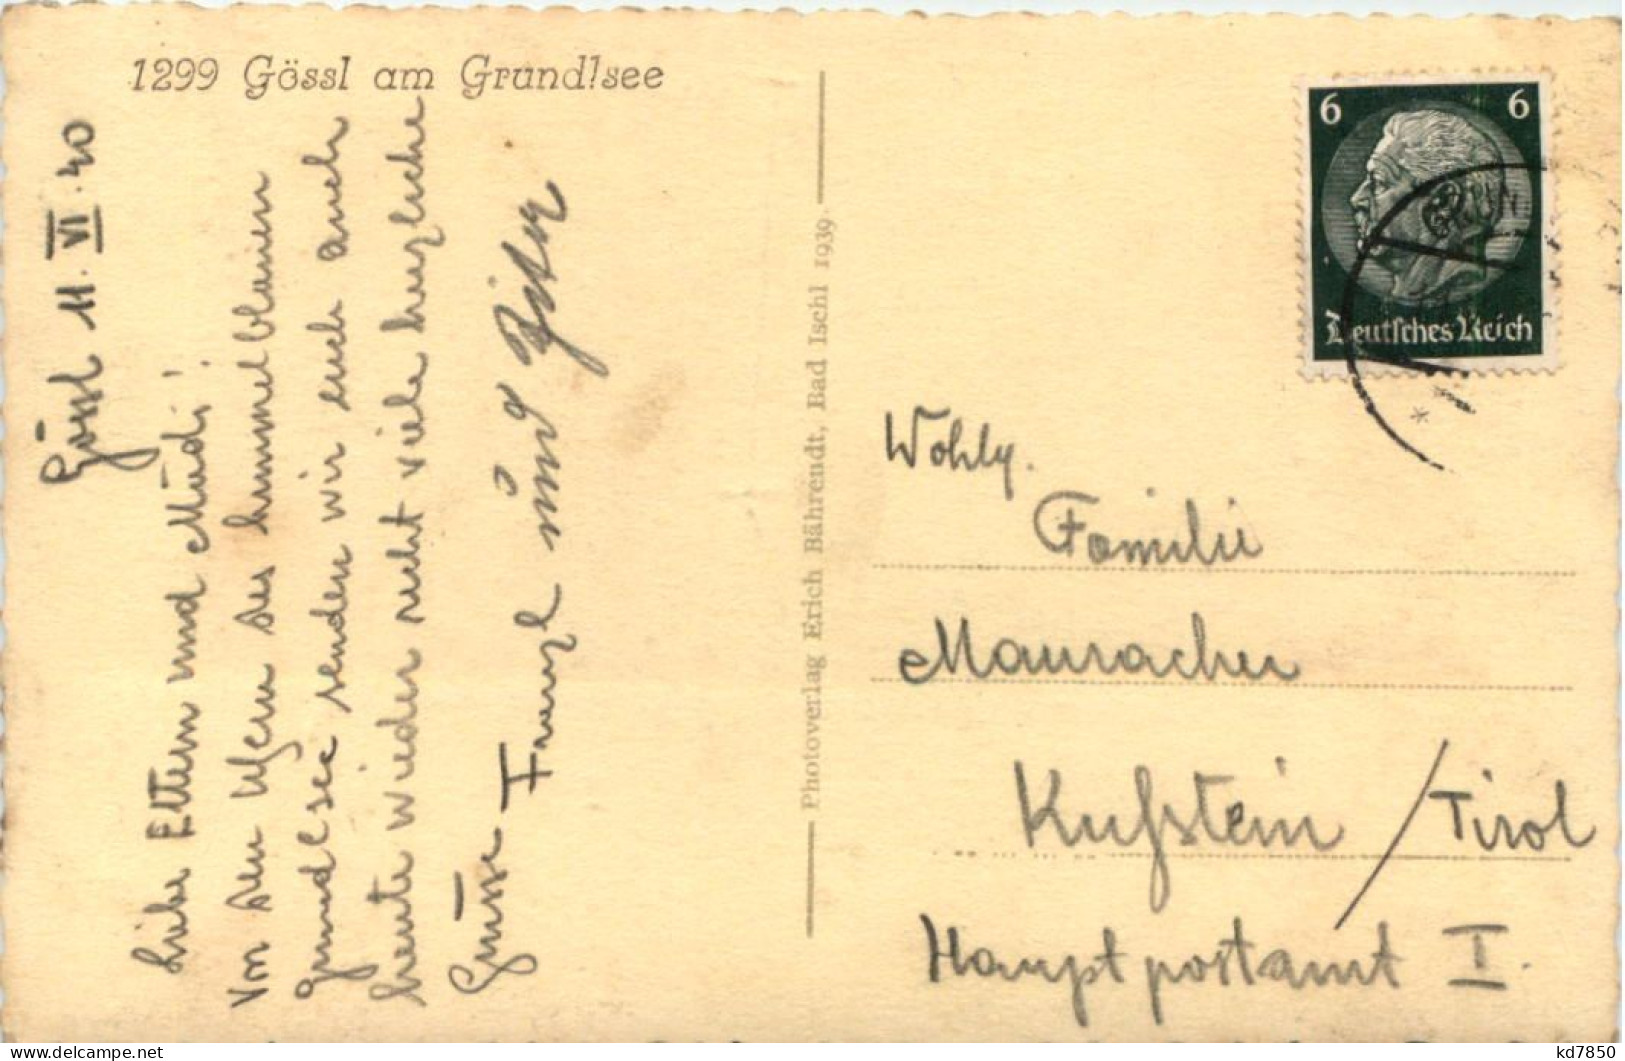 1299 Gössl am Grundlsee
Gössl 11. VI. 40
Liebe Eltern und Mudi!
Von den Ufern des himmelblauen
Grundlsee senden wir euch auch
heute wieder recht viele herzliche
Grüsse Franzl und
Photoverlag Erich Bährendt, Bad Ischl 1939
6 6
Deutsches Reich
GRUN
Wohlg.
Familie
Mauracher
Kufstein / Tirol
Hauptpostamt I.
kd7850